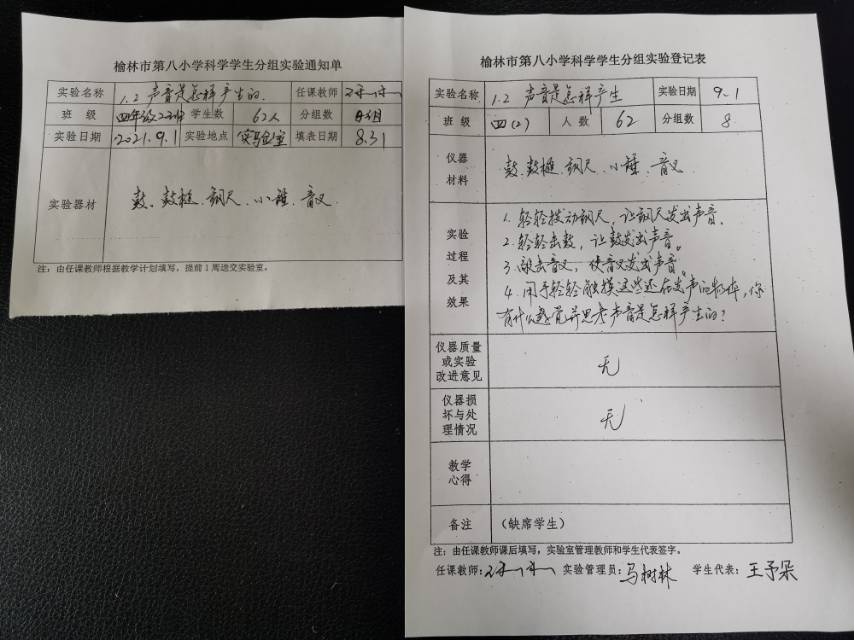 榆林市第八小学科学学生分组实验通知单
实验名称 1.2 声音是怎样产生的. 任课教师
班级 四年级2班 学生数 62人 分组数 8组
实验日期 2021.9.1 实验地点 实验室 填表日期 8.31
实验器材 鼓、鼓槌、钢尺、小锤、音叉
注：由任课教师根据教学计划填写，提前1周送交实验室。
榆林市第八小学科学学生分组实验登记表
实验名称 1.2 声音是怎样产生 实验日期 9.1
班级 四(2) 人数 62 分组数 8
仪器材料 鼓、鼓槌、钢尺、小锤、音叉
实验过程及其效果
1. 轻轻拨动钢尺，让钢尺发出声音.
2. 轻轻击鼓，让鼓发出声音。
3. 敲击音叉，使音叉发出声音。
4. 用手轻轻触摸这些还在发声的物体，你
有什么感觉并思考声音是怎样产生的？
仪器质量或实验改进意见 无
仪器损坏与处理情况 无
教学心得
备注 （缺席学生）
注：由任课教师课后填写，实验室管理教师和学生代表签字。
任课教师： 实验管理员：马树林 学生代表：王予朵